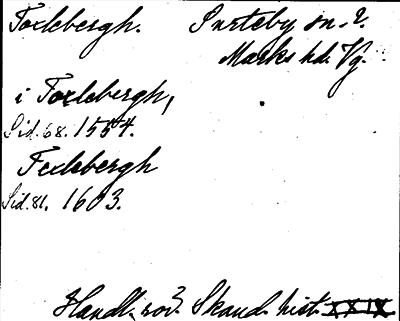 Torlebergh. Surteby sn. ?.
Marks hd. Vg.
i Torlebergh,
Sid. 68. 1554.
Ferlebergh
Sid. 81. 1603.
Handl. rör. Skand. hist. XXIX